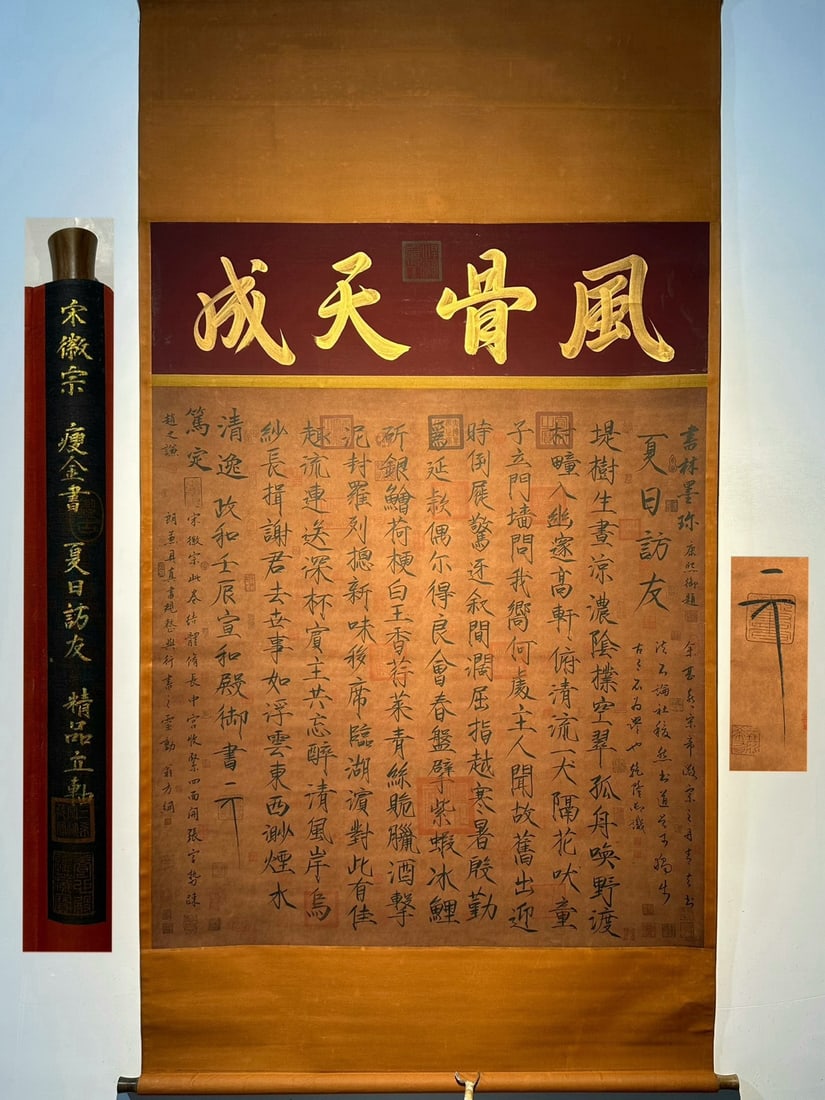 風骨天成
書林墨珍 康熙御題
夏日訪友
堤樹生晝涼濃陰撲空翠孤舟喚野渡
村疃入幽邃高軒俯清流一犬隔花吠童
子立門墻問我嚮何處主人聞故舊出迎
時倒屣驚迓敘間濶屈指越寒暑殷勤
爲延款偶尔得良會春盤擘紫蝦冰鯉
斫銀鱠荷梗白王香荇菜青絲脆臘酒擊
泥封羅列摠新味移席臨湖濱對此有佳
趣流連送深杯賓主共忘醉清風岸烏
紗長揖謝君去世事如浮雲東西渺煙水
清逸 政和壬辰宣和殿御書
篤定
宋徽宗此卷結體脩長中宮收緊四面開張字勢疎
朗兼具真書規整與行書之靈動 翁方綱
趙之謙
宋徽宗 瘦金書 夏日訪友 精品立軸